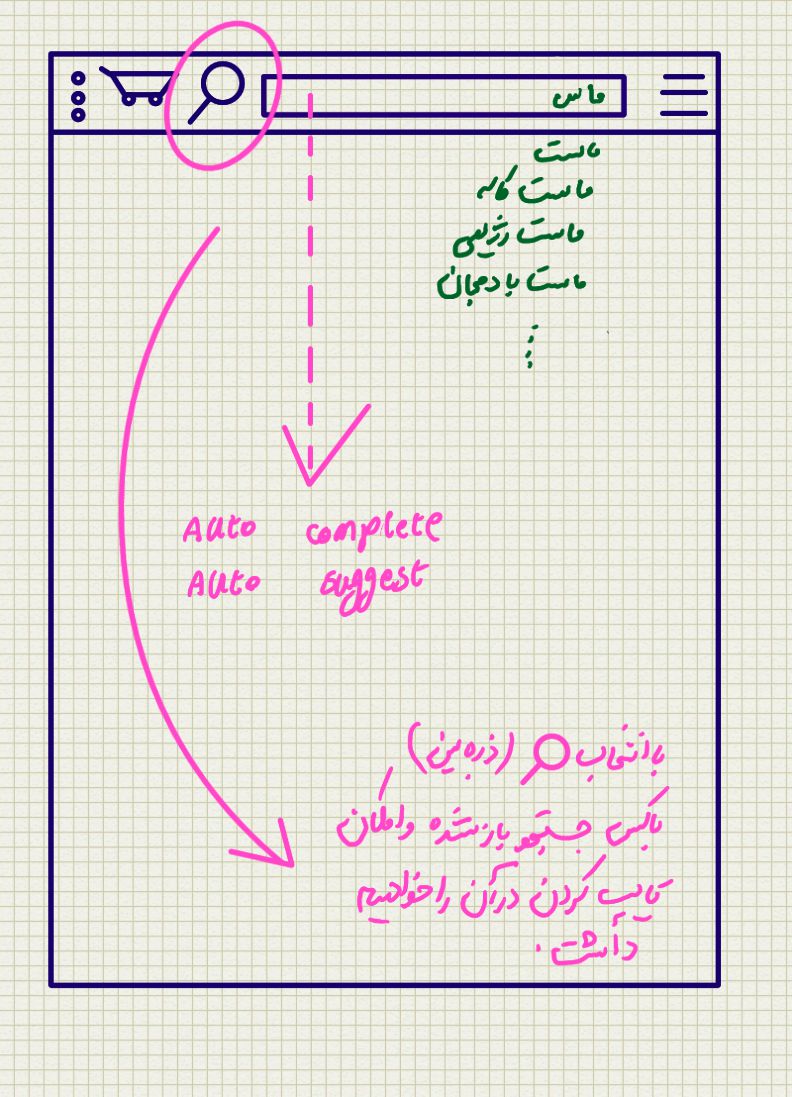 ماس
ماست
ماست کاله
ماست رژیمی
ماست بادمجان
Auto complete
Auto suggest
با انتخاب (ذره بین)
باکس جستجو باز شده و امکان
تایپ کردن در آن را خواهیم
داشت.